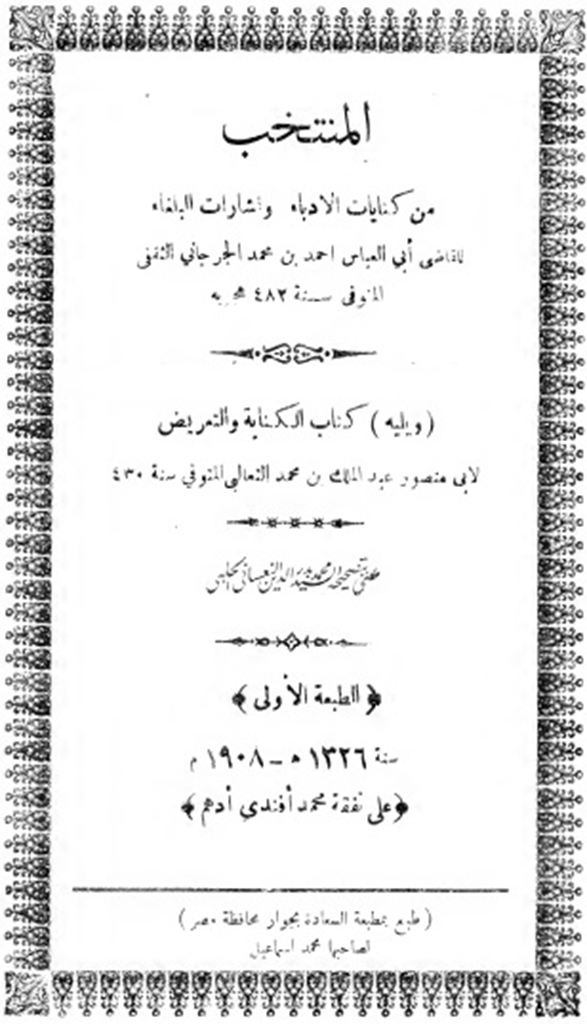 المنتخب
من كنايات الادباء واشارات البلغاء
للقاضى أبي العباس احمد بن محمد الجرجاني الثقفى
المتوفى سنة ٤٨٢ هجريه
(ويليه) كتاب الكناية والتعريض
لابى منصور عبد الملك بن محمد الثعالبى المتوفي سنة ٤٣٠
عنى بتصحيحه السيد محمد بدر الدين النعسانى الحلبى
﴿ الطبعة الأولى ﴾
سنة ١٣٢٦ ه – ١٩٠٨ م
﴿ على نفقة محمد أفندى أدهم ﴾
( طبع بمطبعة السعادة بجوار محافظة مصر )
لصاحبها محمد اسماعيل